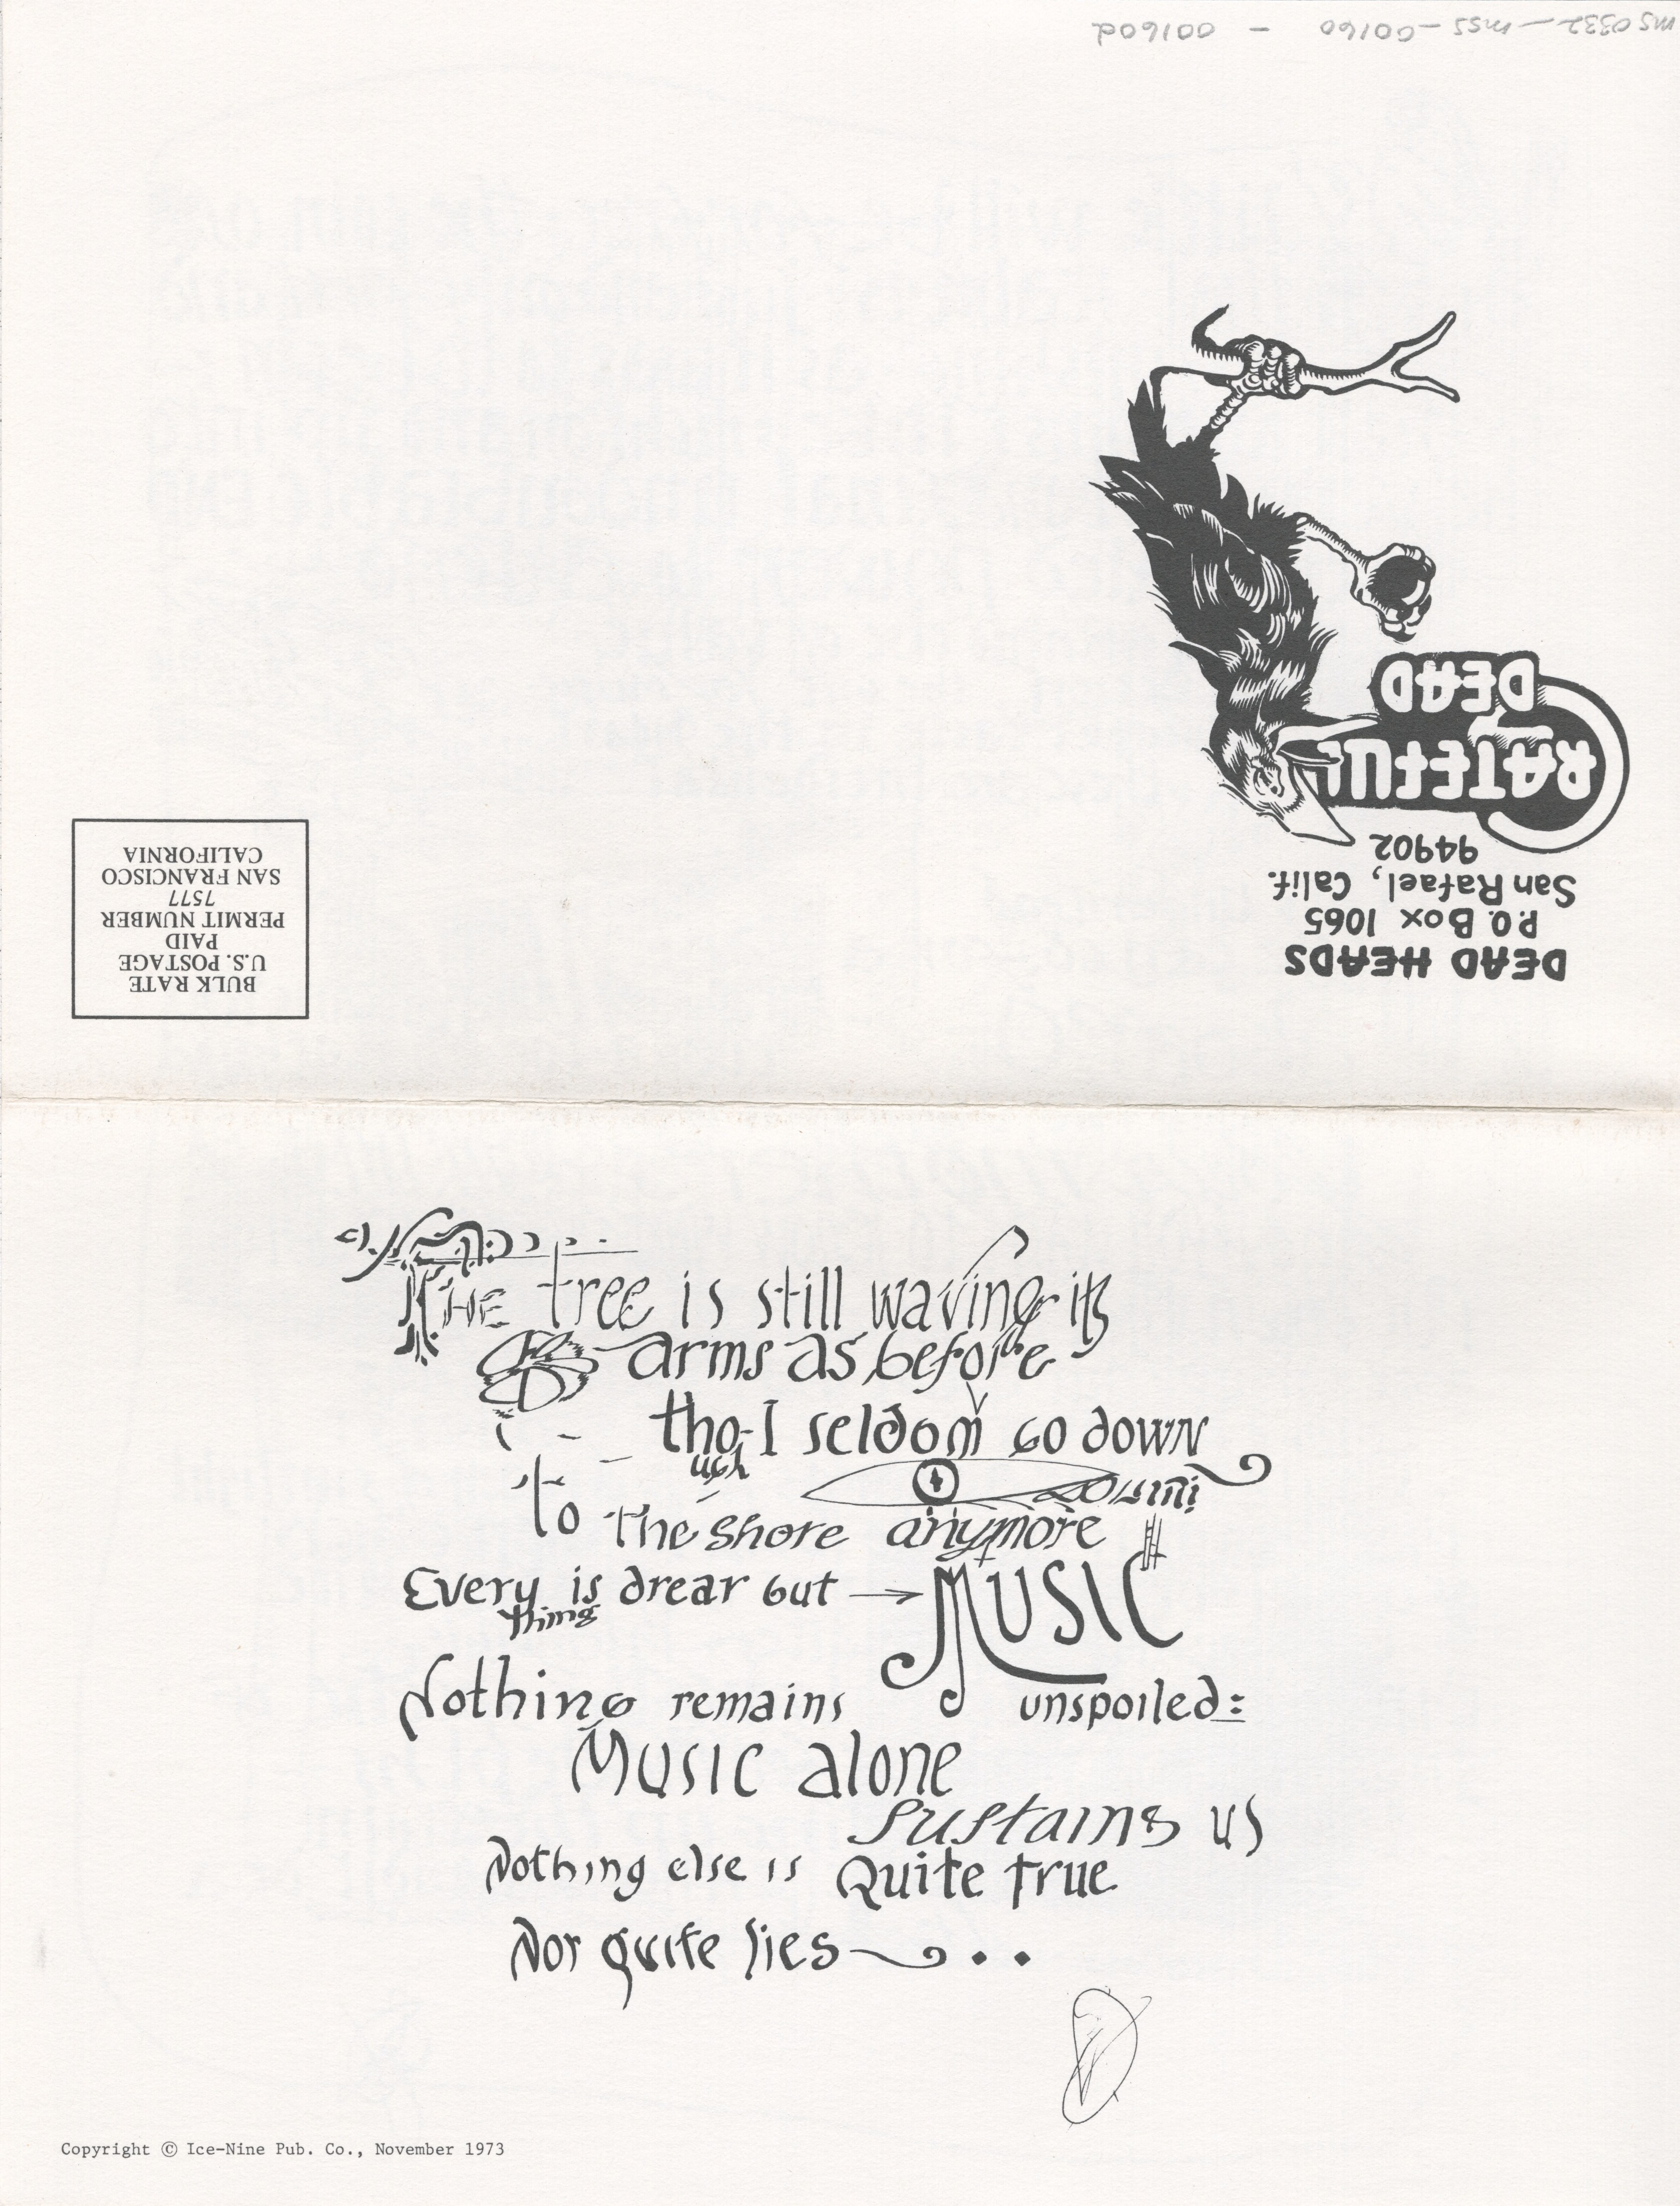 ms0332-ms5-00160 - 00160d
DEAD HEADS
P.O. Box 1065
San Rafael, Calif.
94902
GRATEFUL
DEAD
BULK RATE
U.S. POSTAGE
PAID
PERMIT NUMBER
7577
SAN FRANCISCO
CALIFORNIA
The tree is still waving its
arms as before
tho-I seldom go down
ugh
to the shore anymore
Every is drear but → MUSIC
thing
Nothing remains unspoiled:
Music alone
sustains us
Nothing else is Quite true
Nor quite lies
Copyright © Ice-Nine Pub. Co., November 1973